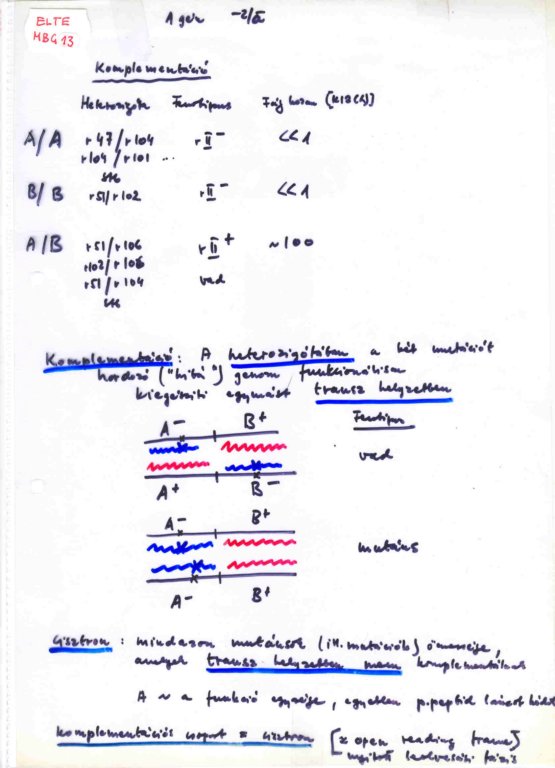 ELTE
MBG 13
A gén -2/a
Komplementáció
Heterozigóta Fenotípus Fág hozam [K12(λ)]
A/A r47/r104 rII- <<1
r104/r101 ...
stb
B/B r51/r102 rII- <<1
A/B r51/r106 rII+ ~100
r102/r106 vad
r51/r104
stb
Komplementáció: A heterozigótában a két mutációt
hordozó ("hibás") genom funkcionálisan
kiegészíti egymást transz helyzetben
A- B+ Fenotípus
vad
A+ B-
A- B+
mutáns
A- B+
Cisztron: mindazon mutánsok (ill. mutációk) összessége,
amelyek transz helyzetben nem komplementálnak
A ~ a funkció egysége, egyetlen p.peptid láncot kódol
Komplementációs csoport = cisztron [x open reading frame]
nyitott leolvasási fázis